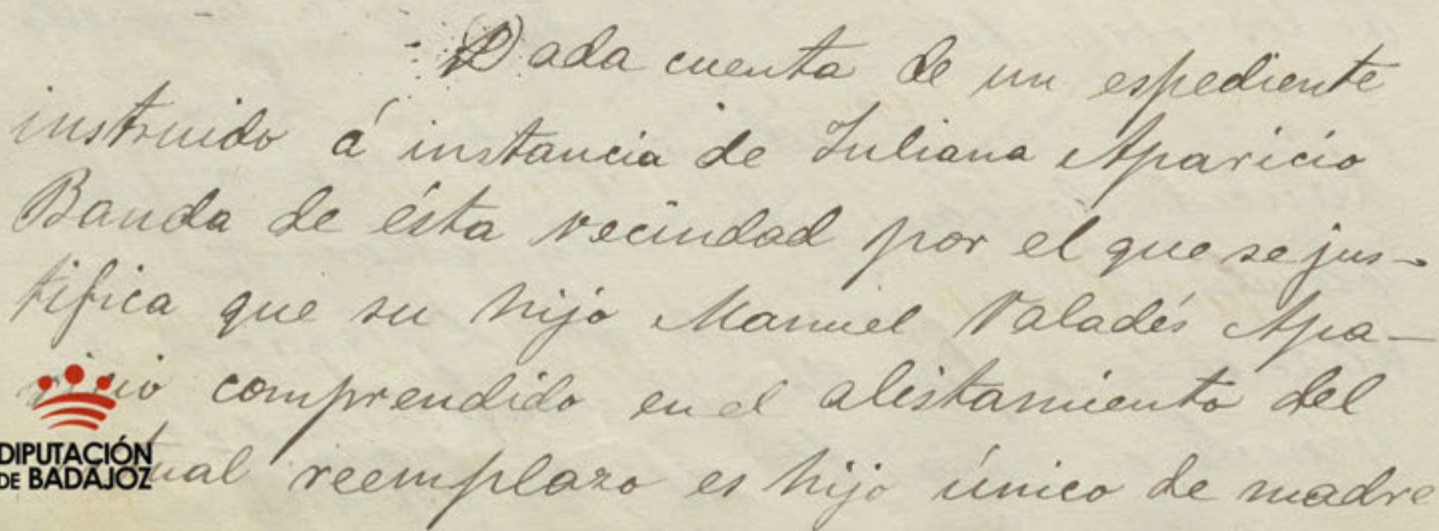 Dada cuenta de un espediente
instruido á instancia de Juliana Aparicio
Banda de ésta vecindad por el que se jus-
tifica que su hijo Manuel Valadés Apa-
ricio comprendido en el alistamiento del
actual reemplazo es hijo único de madre
DIPUTACIÓN
DE BADAJOZ